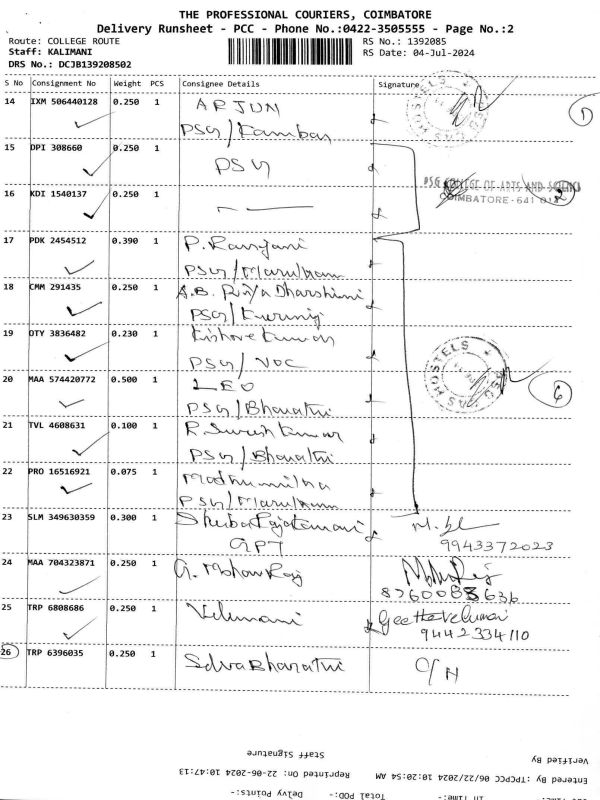 THE PROFESSIONAL COURIERS, COIMBATORE
Delivery Runsheet - PCC - Phone No.:0422-3505555 - Page No.:2
Route: COLLEGE ROUTE RS No.: 1392085
Staff: KALIMANI RS Date: 04-Jul-2024
DRS No.: DCJB139208502
S No Consignment No Weight PCS Consignee Details Signature
14 IXM 506440128 0.250 1 ARJUN
PSG/Kamban
15 DPI 308660 0.250 1 PSG
PSG COLLEGE OF ARTS AND SCIENCE
16 KDI 1540137 0.250 1
COIMBATORE - 641 014
17 PDK 2454512 0.390 1 P. Ranjani
PSG/Marutham
18 CMM 291435 0.250 1 A.B. Priya Dharshini
PSG/Kurinji
19 OTY 3836482 0.230 1 Kishore Kumar
PSG/VOC
20 MAA 574420772 0.500 1 LEO
PSG/Bharathi
6
21 TVL 4608631 0.100 1 R. Suresh Kumar
PSG/Bharathi
22 PRO 16516921 0.075 1 Madhumitha
PSG/Marutham
23 SLM 349630359 0.300 1
GPT 9943372023
24 MAA 704323871 0.250 1 G. Mohan Raj
25 TRP 6808686 0.250 1 Velumani Geetha Velumani
9442334110
26 TRP 6396035 0.250 1 Selva Bharathi C/N
Staff Signature Verified By
Entered By :TPCPCC 06/22/2024 10:20:54 AM Reprinted On: 22-06-2024 10:47:13
In Time: -:- Total POD: Delvy Points:-